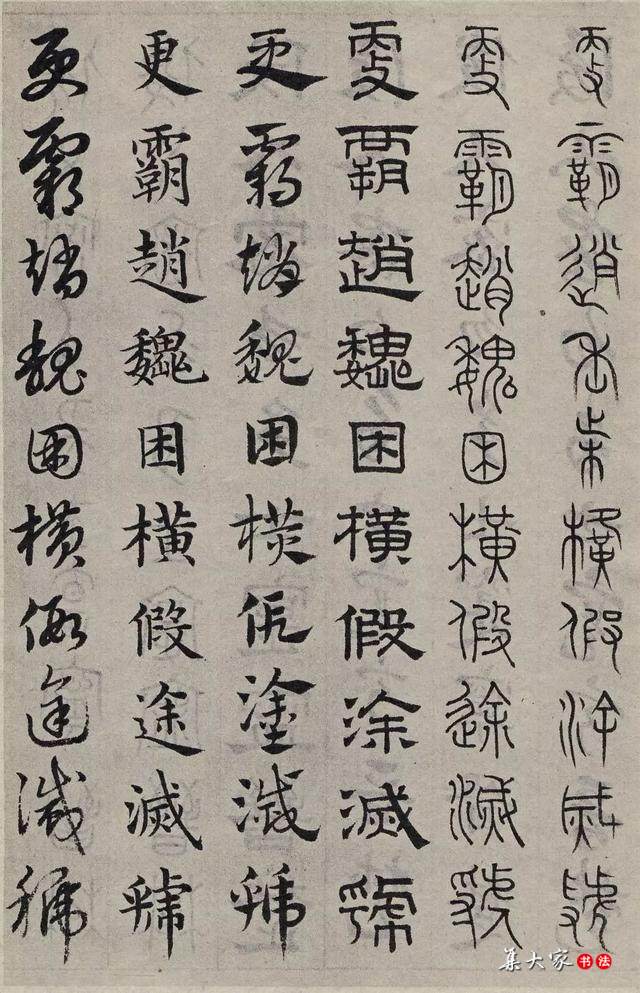 更霸趙魏困橫假涂滅虢
更霸趙魏困橫假途滅虢
更霸趙魏困橫假涂滅虢
更霸趙魏困橫假塗滅虢
更霸趙魏困橫假途滅虢
更霸趙魏困橫假途滅虢
集大家书法